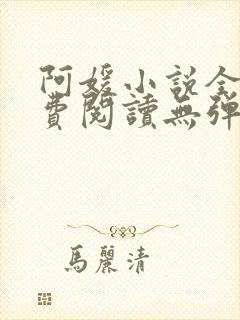 阿媛小說全
費閱讀無彈
馬麗清